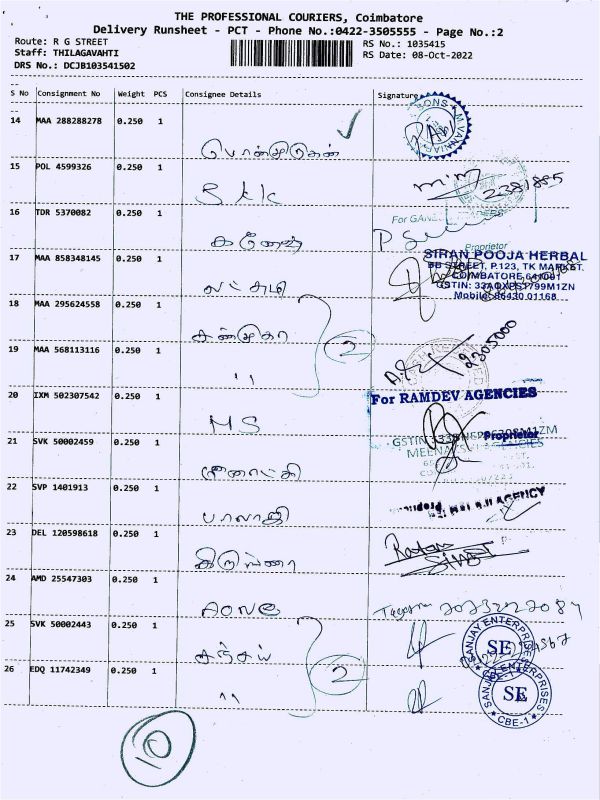 THE PROFESSIONAL COURIERS, Coimbatore
Delivery Runsheet - PCT - Phone No.:0422-3505555 - Page No.:2
Route: R G STREET
RS No.: 1035415
Staff: THILAGAVAHTI
RS Date: 08-Oct-2022
DRS No.: DCJB103541502
S No Consignment No Weight PCS Consignee Details Signature
14 MAA 288288278 0.250 1
பொன்முருகன்
15 POL 4599326 0.250 1
SKK
2381895
16 TDR 5370082 0.250 1
கணேஷ்
For
Proprietor
17 MAA 858348145 0.250 1
லட்சுமி
SIRAN POOJA HERBAL
STREET, P.123, TK MARKET,
COIMBATORE 641001
Mobile: 86430 01168
18 MAA 295624558 0.250 1
சண்முகா
2
19 MAA 568113116 0.250 1
"
2305000
20 IXM 502307542 0.250 1
MS
For RAMDEV AGENCIES
Proprietor
21 SVK 50002459 0.250 1
மீனாட்சி
GSTIN
22 SVP 1401913 0.250 1
பாலாஜி
AGENCY
23 DEL 120598618 0.250 1
Ratan Singh
24 AMD 25547303 0.250 1
AONE
25 SVK 50002443 0.250 1
சஞ்சய்
2
SANJAY ENTERPRISES
SE
CBE-1
26 EDQ 11742349 0.250 1
"
SANJAY ENTERPRISES
SE
CBE-1
10